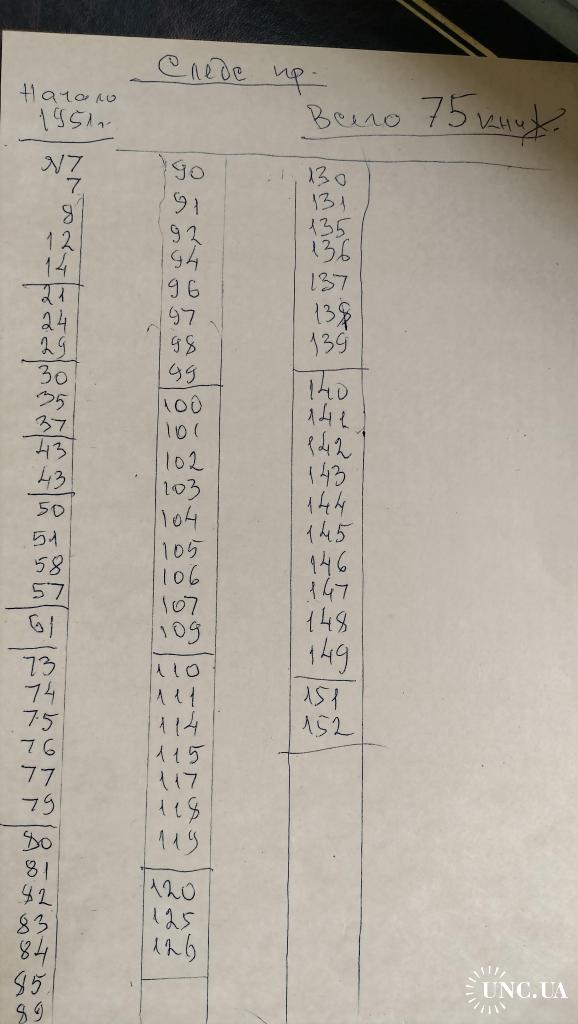 Следс пр.
Начало
1951г.
Всего 75 книж.
N7
7
8
12
14
21
24
29
30
35
37
43
43
50
51
58
57
61
73
74
75
76
77
79
80
81
82
83
84
85
89
90
91
92
94
96
97
98
99
100
101
102
103
104
105
106
107
109
110
111
114
115
117
118
119
120
125
126
130
131
135
136
137
138
139
140
141
142
143
144
145
146
147
148
149
151
152
UNC.UA